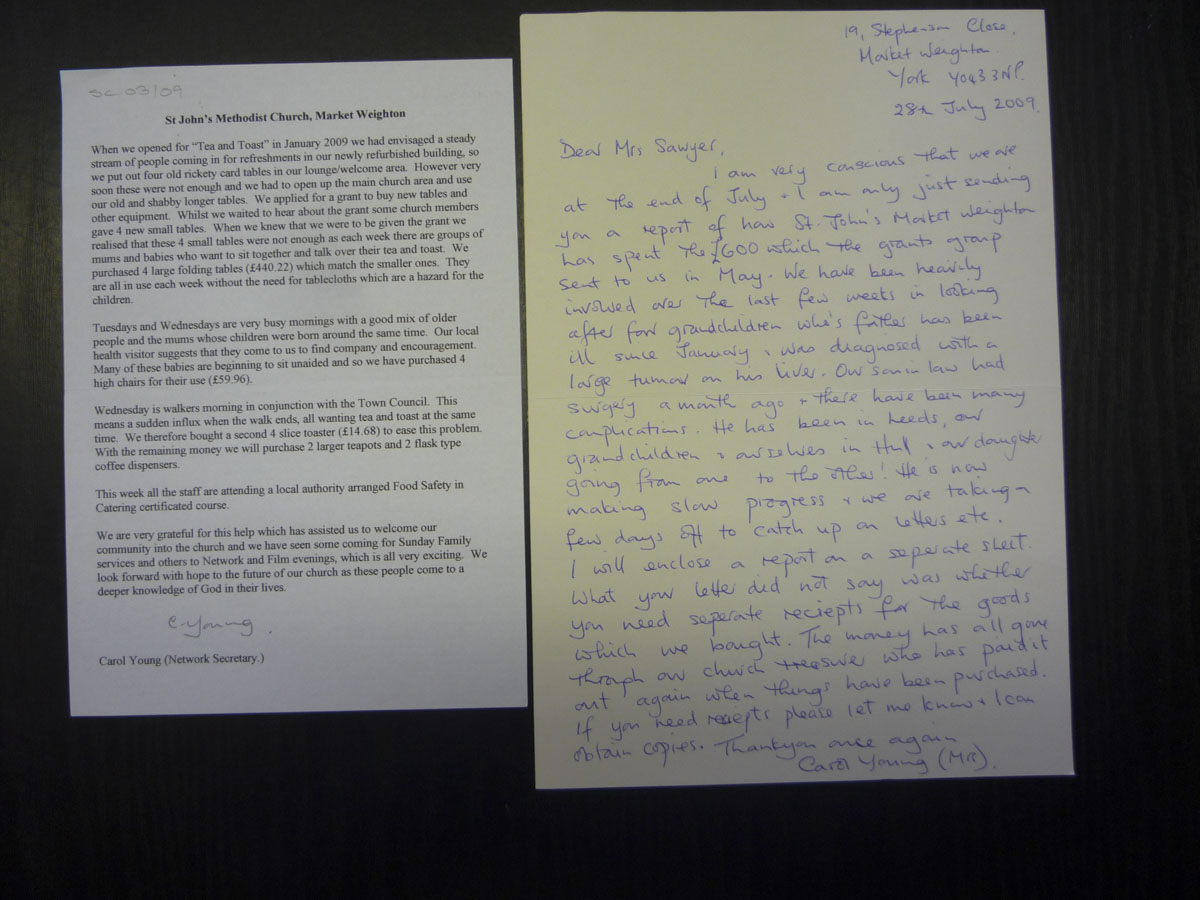 SC 03/09
St John's Methodist Church, Market Weighton
When we opened for "Tea and Toast" in January 2009 we had envisaged a steady
stream of people coming in for refreshments in our newly refurbished building, so
we put out four old rickety card tables in our lounge/welcome area. However very
soon these were not enough and we had to open up the main church area and use
our old and shabby longer tables. We applied for a grant to buy new tables and
other equipment. Whilst we waited to hear about the grant some church members
gave 4 new small tables. When we knew that we were to be given the grant we
realised that these 4 small tables were not enough as each week there are groups of
mums and babies who want to sit together and talk over their tea and toast. We
purchased 4 large folding tables (£440.22) which match the smaller ones. They
are all in use each week without the need for tablecloths which are a hazard for the
children.
Tuesdays and Wednesdays are very busy mornings with a good mix of older
people and the mums whose children were born around the same time. Our local
health visitor suggests that they come to us to find company and encouragement.
Many of these babies are beginning to sit unaided and so we have purchased 4
high chairs for their use (£59.96).
Wednesday is walkers morning in conjunction with the Town Council. This
means a sudden influx when the walk ends, all wanting tea and toast at the same
time. We therefore bought a second 4 slice toaster (£14.68) to ease this problem.
With the remaining money we will purchase 2 larger teapots and 2 flask type
coffee dispensers.
This week all the staff are attending a local authority arranged Food Safety in
Catering certificated course.
We are very grateful for this help which has assisted us to welcome our
community into the church and we have seen some coming for Sunday Family
services and others to Network and Film evenings, which is all very exciting. We
look forward with hope to the future of our church as these people come to a
deeper knowledge of God in their lives.
C. Young.
Carol Young (Network Secretary.)
19, Stephenson Close,
Market Weighton
York YO43 3NP.
28th July 2009.
Dear Mrs Sawyer,
I am very conscious that we are
at the end of July & I am only just sending
you a report of how St. John's Market Weighton
has spent the £600 which the grants group
sent to us in May. We have been heavily
involved over the last few weeks in looking
after four grandchildren who's father has been
ill since January & was diagnosed with a
large tumour on his liver. Our son in law had
surgery a month ago & there have been many
complications. He has been in Leeds, our
grandchildren & ourselves in Hull & our daughter
going from one to the other! He is now
making slow progress & we are taking a
few days off to catch up on letters etc.
I will enclose a report on a seperate sheet.
What your letter did not say was whether
you need seperate reciepts for the goods
which we bought. The money has all gone
through our church treasurer who has paid it
out again when things have been purchased.
If you need reciepts please let me know & I can
obtain copies. Thankyou once again
Carol Young (Mrs).